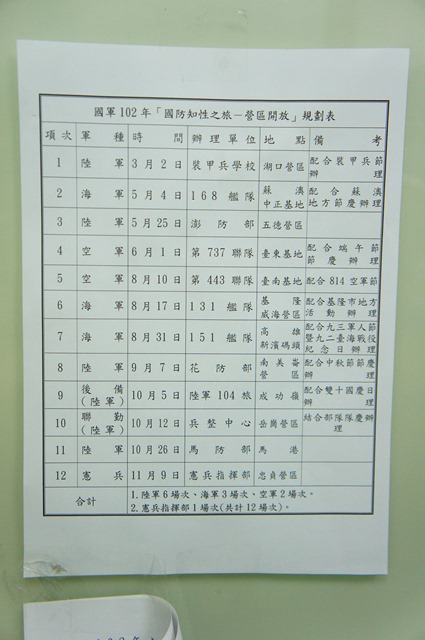 國軍102年「國防知性之旅－營區開放」規劃表
項次 軍種 時間 辦理單位 地點 備考
1 陸軍 3月2日 裝甲兵學校 湖口營區 配合裝甲兵節辦理
2 海軍 5月4日 168艦隊 蘇澳中正基地 配合蘇澳地方節慶辦理
3 陸軍 5月25日 澎防部 五德營區
4 空軍 6月1日 第737聯隊 臺東基地 配合端午節節慶辦理
5 空軍 8月10日 第443聯隊 臺南基地 配合814空軍節
6 海軍 8月17日 131艦隊 基隆威海營區 配合基隆市地方活動辦理
7 海軍 8月31日 151艦隊 高雄新濱碼頭 配合九三軍人節暨九二臺海戰役紀念日辦理
8 陸軍 9月7日 花防部 南美崙營區 配合中秋節節慶辦理
9 後備(陸軍) 10月5日 陸軍104旅 成功嶺 配合雙十國慶日辦理
10 聯勤(陸軍) 10月12日 兵整中心 岳崗營區 結合部隊隊慶辦理
11 陸軍 10月26日 馬防部 馬港
12 憲兵 11月9日 憲兵指揮部 忠貞營區
合計 1.陸軍6場次、海軍3場次、空軍2場次。
2.憲兵指揮部1場次(共計12場次)。